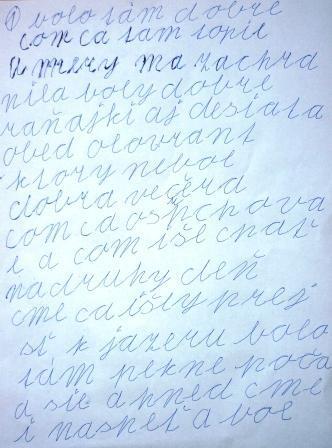 ① bolo tám dobre
com ca tam topil
U mrezy ma zachra
nila boly dobre
raňajki aj desiata
obed olovrant
ktory nebol
dobra večera
com ca ospchova
l a com iše cpať
nadruhy deň
cme caišly prej
sť k jazeru bolo
tám pekne poča
a sie ahned cme
i naspeť a bol